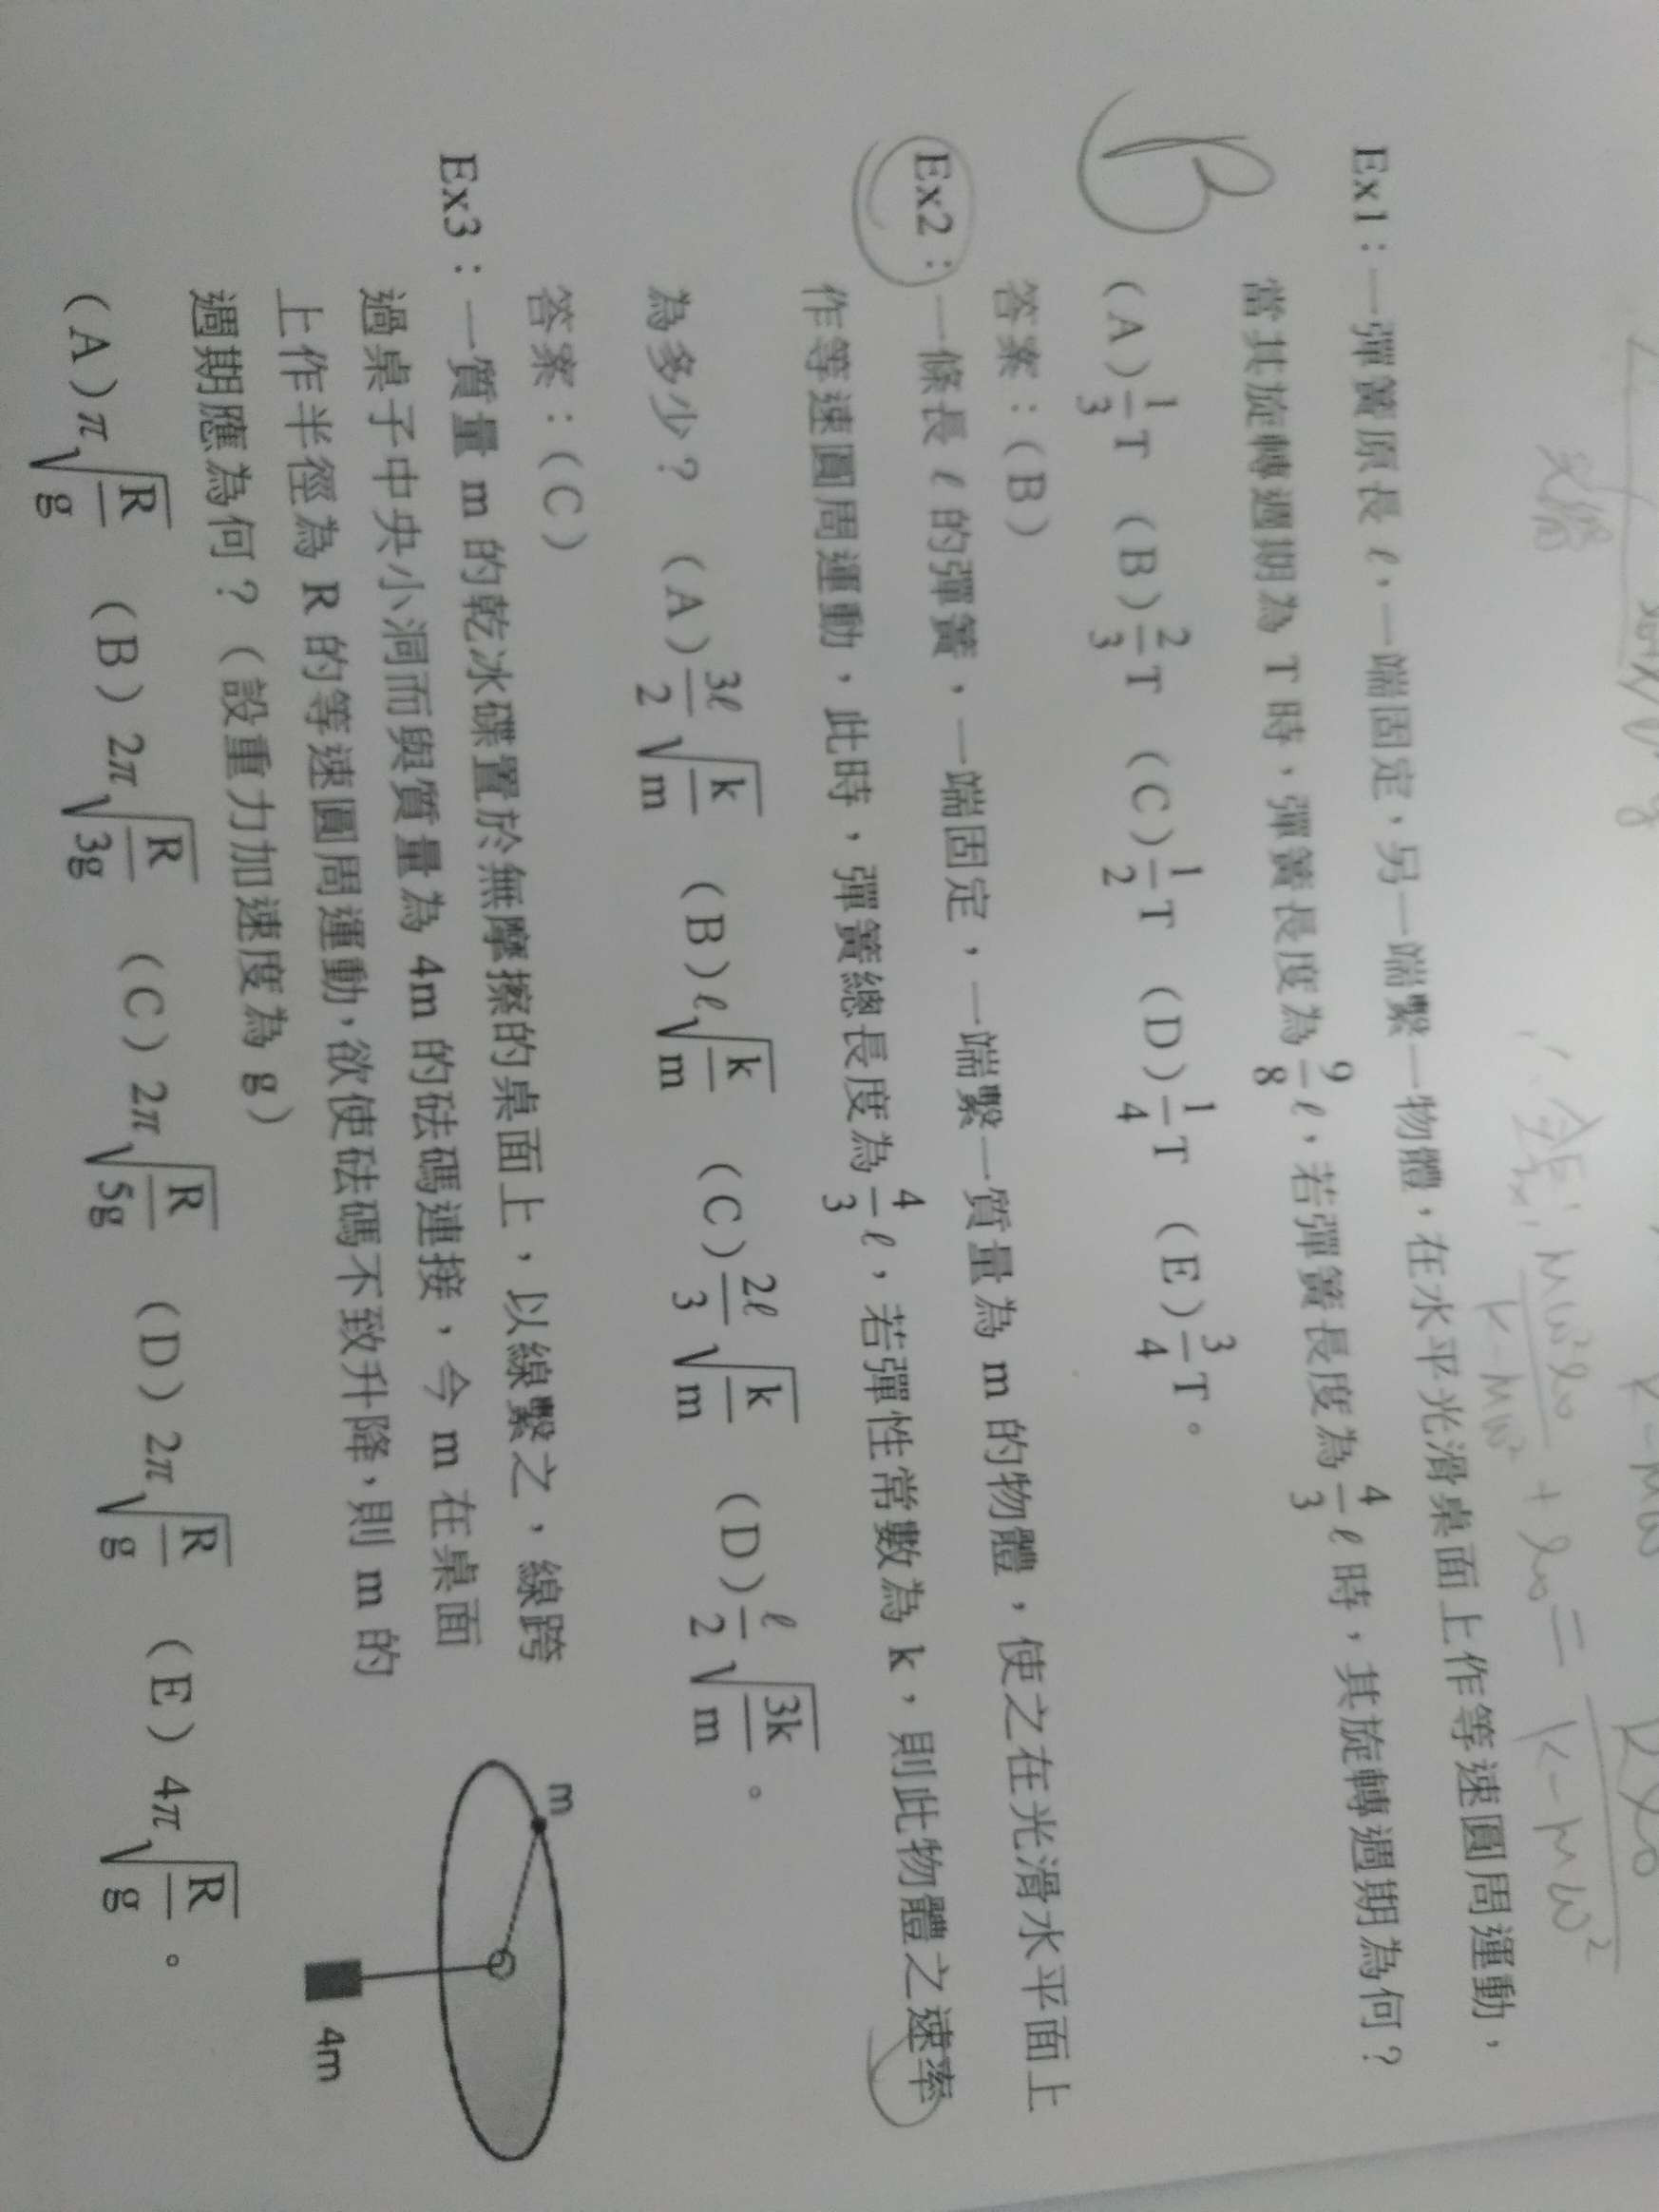 金長: Mω²l₀/K-Mω² + l₀ = Kl₀/K-Mω²
Ex1:一彈簧原長ℓ,一端固定,另一端繫一物體,在水平光滑桌面上作等速圓周運動,
當其旋轉週期為 T 時,彈簧長度為9/8ℓ,若彈簧長度為4/3ℓ時,其旋轉週期為何?
(A)1/3T (B)2/3T (C)1/2T (D)1/4T (E)3/4T。
B
答案:(B)
Ex2:一條長ℓ的彈簧,一端固定,一端繫一質量為 m 的物體,使之在光滑水平面上
作等速圓周運動,此時,彈簧總長度為4/3ℓ,若彈性常數為 k,則此物體之速率
為多少? (A)3ℓ/2√(k/m) (B)ℓ√(k/m) (C)2ℓ/3√(k/m) (D)ℓ/2√(3k/m)。
答案:(C)
Ex3:一質量 m 的乾冰碟置於無摩擦的桌面上,以線繫之,線跨
過桌子中央小洞而與質量為 4m 的砝碼連接,今 m 在桌面
上作半徑為 R 的等速圓周運動,欲使砝碼不致升降,則 m 的
週期應為何?(設重力加速度為 g)
(A)π√(R/g) (B)2π√(R/3g) (C)2π√(R/5g) (D)2π√(R/g) (E)4π√(R/g)。
m
4m